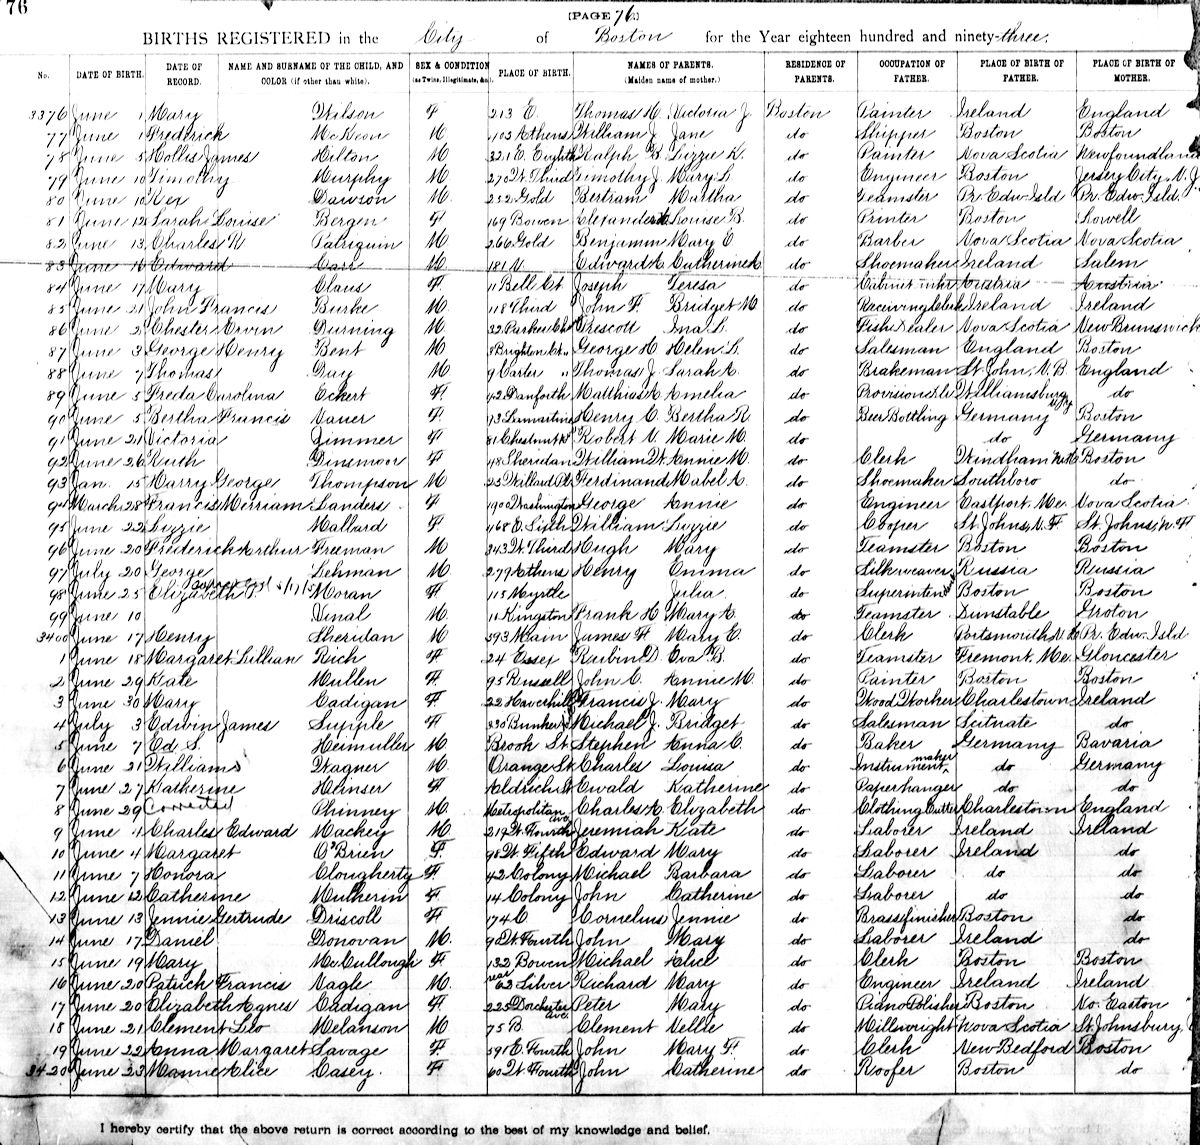 76
[PAGE 76]
BIRTHS REGISTERED in the City of Boston for the Year eighteen hundred and ninety-three.
No. DATE OF BIRTH. DATE OF RECORD. NAME AND SURNAME OF THE CHILD, AND COLOR (if other than white). SEX & CONDITION (as Twins, Illegitimate, &c.) PLACE OF BIRTH. NAMES OF PARENTS. (Maiden name of mother.) RESIDENCE OF PARENTS. OCCUPATION OF FATHER. PLACE OF BIRTH OF FATHER. PLACE OF BIRTH OF MOTHER.
3376 June 1 Mary Wilson F 213 E Thomas H. Victoria J. Boston Painter Ireland England
77 June 1 Fredrick McKeon M 403 Athens William J. Jane do Shipper Boston Boston
78 June 5 Hollis James Hilton M. 321 E. Eighth Ralph Lizzie K. do Painter Nova Scotia Newfoundland
79 June 10 Timothy Murphy M. 270 W. Third Timothy J. Mary L. do Engineer Boston Jersey City, N.J.
80 June 10 Dawson M. 252 Gold Bertram Martha do Teamster Pr. Edw. Isld Pr. Edw. Isld.
81 June 12 Sarah Louise Bergen F 169 Bowen Louise B. do Printer Boston Lowell
82 June 13 Charles R Patriquin M. 266 Gold Benjamin Mary E do Barber Nova Scotia Nova Scotia
83 June 16 Edward Carr M 181 Edward A Catherine A. do Shoemaker Ireland Salem
84 June 17 Mary Claus F. 11 Bell Ct Joseph Teresa do Cabinet mkr Austria Austria
85 June 21 John Francis Burke M. 118 Third John F. Bridget M do Receiving Clerk Ireland Ireland
86 June 2 Chester Ervin Durning M 32 Parker Prescott Ina L. do Fish Dealer Nova Scotia New Brunswick
87 June 3 George Henry Bent M 3 Brighton George H Helen L. do Salesman England Boston
88 June 7 Thomas Day M 9 Carter " Thomas J. Sarah A. do Brakeman St John, N.B. England
89 June 5 Freda Carolina Eckert F. 42 Danforth Matthias Amelia do Provision Williamsburg do
90 June 5 Bertha Francis Nauer F. 73 Lamartine Henry C Bertha R do Beer Bottling Germany Boston
91 June 21 Victoria Zimmer F 81 Chestnut Robert Marie M. do do Germany
92 June 26 Ruth Dinsmoor F 48 Sheridan William W. Annie M. do Clerk Windham Boston
93 Jan. 15 Harry George Thompson M. 25 Willard Pl Ferdinand Mabel A. do Shoemaker Southboro do
94 March 28 Francis Merriam Sanders F 190 Washington George Annie do Engineer Eastport, Me. Nova Scotia
95 June 22 Lizzie Mallard F. 468 E. Sixth William Lizzie do Cooper St Johns, N.F. St. Johns, N.F.
96 June 20 Frederick Arthur Freeman M 343 W. Third Hugh Mary do Teamster Boston Boston
97 July 20 George Lehman M. 279 Athens Henry Emma do Silk weaver Russia Russia
98 June 25 Elizabeth Moran F. 115 Myrtle Julia do Superinten Boston Boston
99 June 10 Vinal M. 11 Kingston Frank H Mary A. do Teamster Dunstable Groton
3400 June 17 Henry Sheridan M 393 Main James H Mary E. do Clerk Portsmouth, N.H. Pr. Edw. Isld
1 June 18 Margaret Lillian Rich F 24 Essex Rubin D. Eva B. do Teamster Fremont, Me. Gloucester
2 June 29 Kate Mullen F. 95 Russell John C. Annie M do Painter Boston Boston
3 June 30 Mary Cadigan F. 22 Haverhill Francis J. Mary do Wood Worker Charlestown Ireland
4 July 3 Edwin James Supple F 330 Bunker Michael J. Bridget do Salesman Scituate do
5 June 7 Ed S. Hermuller M. Brook St Stephen Anna C. do Baker Germany Bavaria
6 June 21 William Wagner M. Orange St Charles Louisa do Instrument maker do Germany
7 June 27 Katherine Heinser F Aldrich St Ewald Katherine do Paperhanger do do
8 June 29 Corrected Phinney M. Metropolitan Ave Charles A. Elizabeth do Clothing Cutter Charlestown England
9 June 4 Charles Edward Mackey M. 219 W. Fourth Jeremiah Kate do Laborer Ireland Ireland
10 June 4 Margaret O'Brien F. 98 W. Fifth Edward Mary do Laborer Ireland do
11 June 7 Honora Clougherty F 42 Colony Michael Barbara do Laborer do do
12 June 12 Catherine Mulherin F 14 Colony John Catherine do Laborer do do
13 June 13 Jennie Gertrude Driscoll F. 174 C Cornelius Jennie do Brassfinisher Boston do
14 June 17 Daniel Donovan M. 90 W. Fourth John Mary do Laborer Ireland do
15 June 19 Mary McCullough F 132 Bowen Michael Alice do Clerk Boston Boston
16 June 20 Patrick Francis Nagle M. rear 62 Silver Richard Mary do Engineer Ireland Ireland
17 June 20 Elizabeth Agnes Cadigan F. 225 Dorchester Ave. Peter Mary do Piano Polisher Boston No. Easton
18 June 21 Clement Leo Melanson M 75 B. Clement Nellie do Millwright Nova Scotia St Johnsbury
19 June 22 Anna Margaret Savage F. 591 E. Fourth John Mary F. do Clerk New Bedford Boston
3420 June 23 Mamie Alice Casey. F 60 W. Fourth John Catherine do Roofer Boston do
I hereby certify that the above return is correct according to the best of my knowledge and belief.